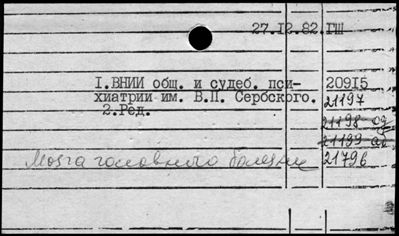 27.12.82.ГШ
I.ВНИИ общ. и судеб. пси- 20915
хиатрии им. В.П. Сербского. 21197
2.Ред. 21198
21199
Мозга головного болезни 21796